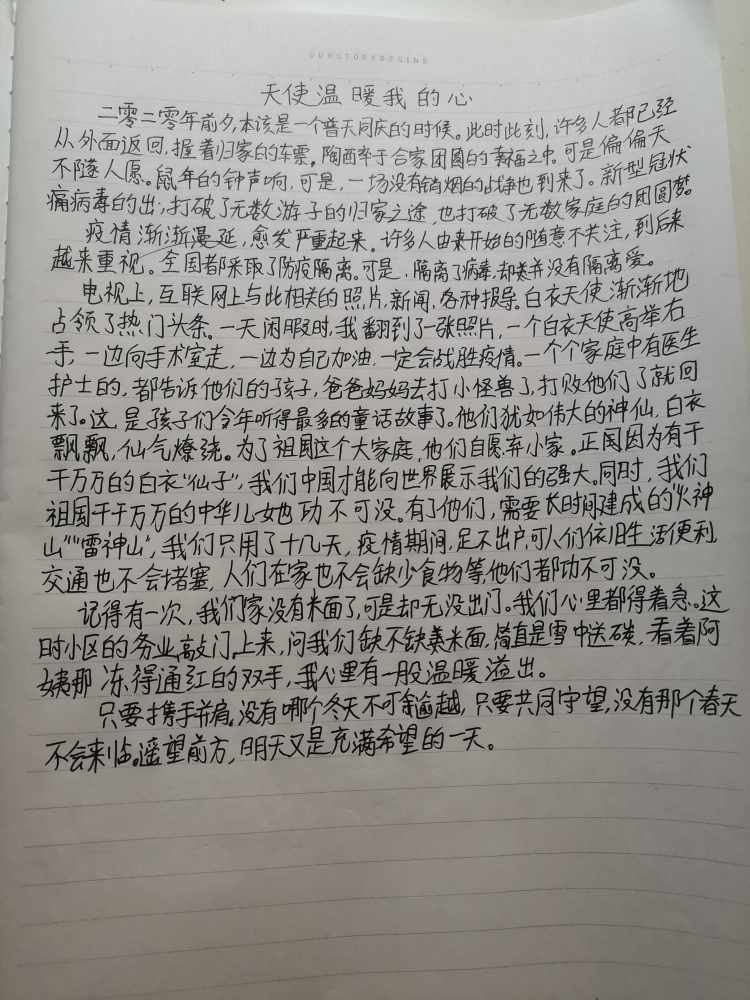 OURSTORYBEGINS
天使温暖我的心
二零二零年前夕,本该是一个普天同庆的时候。此时此刻,许多人都已经
从外面返回,握着归家的车票。陶西牵于合家团圆的幸福之中。可是偏偏天
不隧人愿。鼠年的钟声响,可是,一场没有销烟的战争也到来了。新型冠状
痛病毒的出,打破了无数游子的归家之途,也打破了无数家庭的团圆梦。
疫情渐渐漫延,愈发严重起来。许多人由来开始的随意不关注,到后来
越来重视。全国都采取了防疫隔离。可是,隔离了病毒,却并没有隔离爱。
电视上,互联网上与此相关的照片,新闻,各种报导。白衣天使渐渐地
占领了热门头条。一天闲暇时,我翻到了一张照片,一个白衣天使高举右
手,一边向手术室走,一边为自己加油,一定会战胜疫情。一个个家庭中有医生
护士的,都告诉他们的孩子,爸爸妈妈去打小怪兽了,打败他们了就回
来了。这是孩子们今年听得最多的童话故事了。他们犹如伟大的神仙,白衣
飘飘,仙气燎绕。为了祖国这个大家庭,他们自愿弃小家。正国因为有千
千万万的白衣“仙子”,我们中国才能向世界展示我们的强大。同时,我们
祖国千千万万的中华儿女她功不可没。有了他们,需要长时间建成的“火神
山”“雷神山”,我们只用了十几天,疫情期间,足不出户,可人们依旧生活便利,
交通也不会堵塞,人们在家也不会缺少食物等,他们都功不可没。
记得有一次,我们家没有米面了,可是却无没出门。我们心里都得着急。这
时小区的务业敲门上来,问我们缺不缺美米面,简直是雪中送碳,看着阿
姨那冻得通红的双手,我心里有一股温暖溢出。
只要携手并肩,没有哪个冬天不可逾越,只要共同守望,没有那个春天
不会来临。遥望前方,明天又是充满希望的一天。